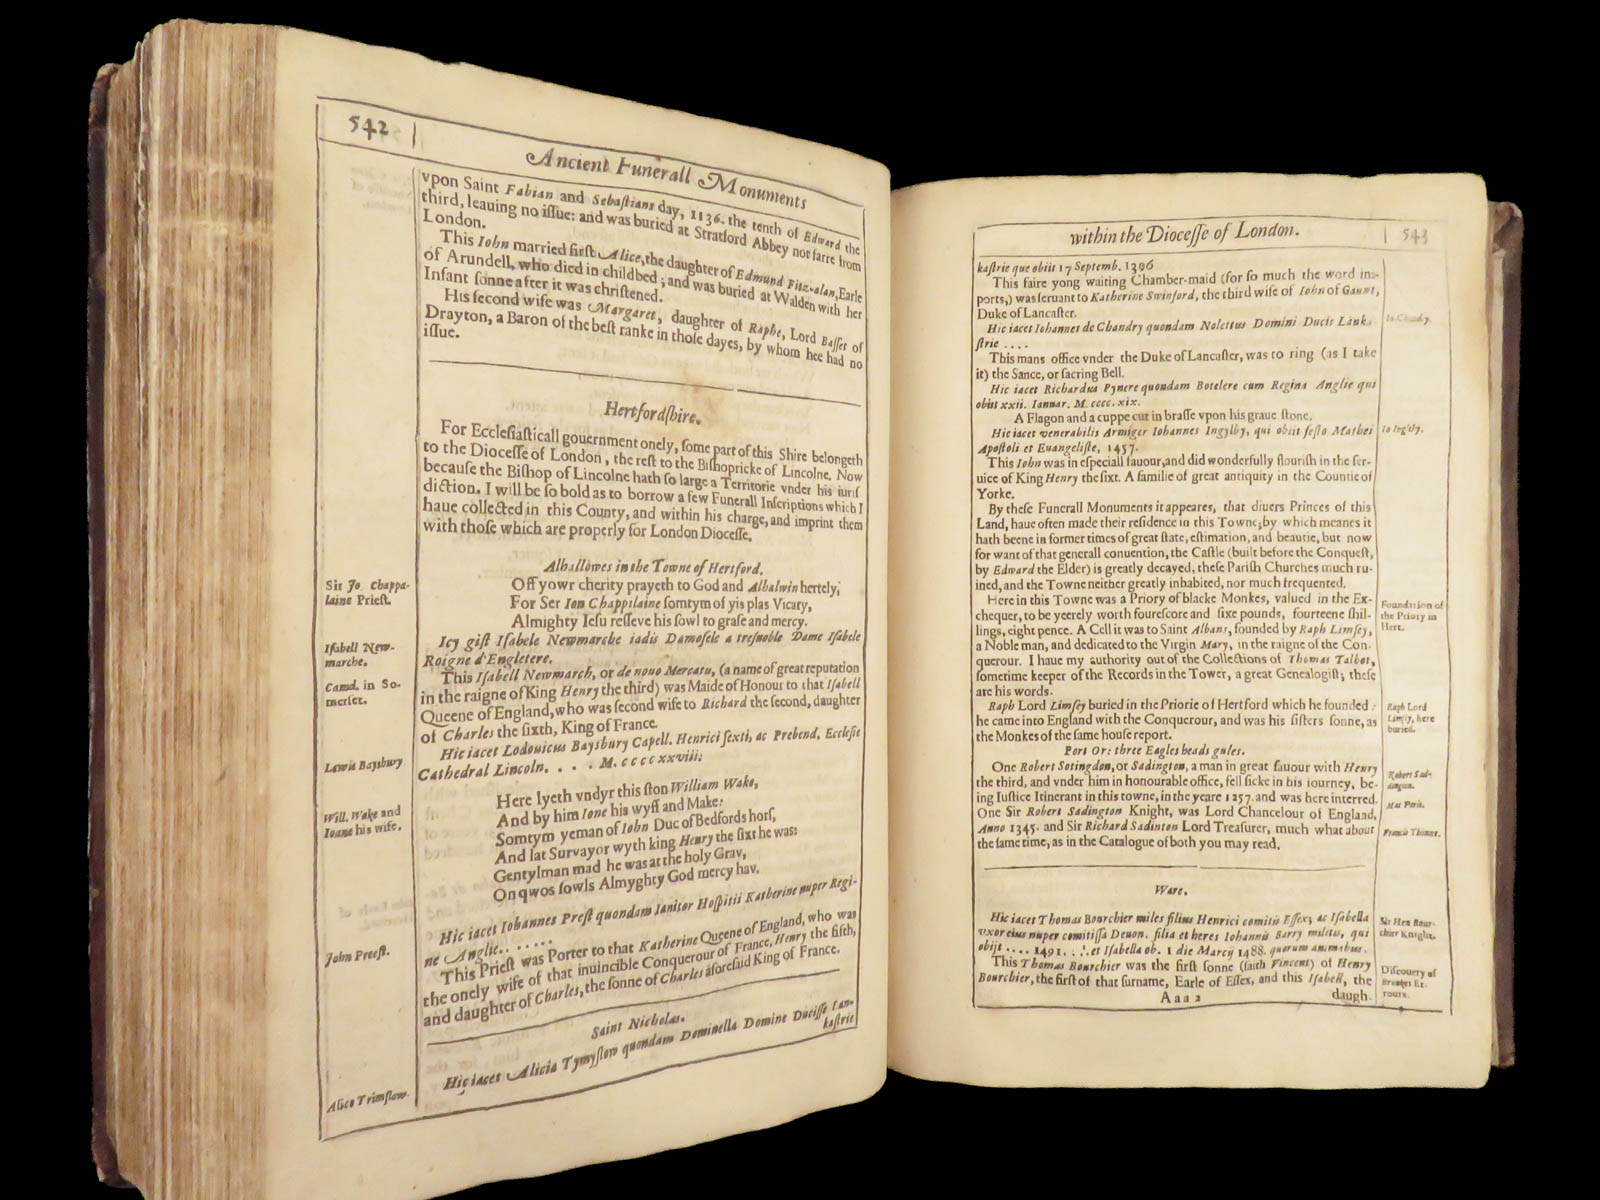 542
Ancient Funerall Monuments
vpon Saint Fabian and Sebaſtians day, 1136. the tenth of Edward the
third, leauing no iſſue: and was buried at Stratford Abbey not farre from
London.
This Iohn married firſt Alice, the daughter of Edmund Fitz-alan, Earle
of Arundell, who died in childbed; and was buried at Walden with her
Infant ſonne after it was chriſtened.
His ſecond wife was Margaret, daughter of Raphe, Lord Baſſet of
Drayton, a Baron of the beſt ranke in thoſe dayes, by whom hee had no
iſſue.
Hertfordſhire.
For Eccleſiaſticall gouernment onely, ſome part of this Shire belongeth
to the Dioceſſe of London, the reſt to the Biſhopricke of Lincolne. Now
becauſe the Biſhop of Lincolne hath ſo large a Territorie vnder his iuriſ
diction, I will be ſo bold as to borrow a few Funerall Inſcriptions which I
haue collected in this County, and within his charge, and imprint them
with thoſe which are properly for London Dioceſſe.
Alhallowes in the Towne of Hertford.
Sir Jo. Chappa-
laine Prieſt.
Off yowr cherity prayeth to God and Alhalwin hertely;
For Ser Ion Chappilaine ſomtym of yis plas Vicary,
Almighty Ieſu reſſeve his ſowl to graſe and mercy.
Iſabell New-
marche.
Icy giſt Iſabele Newmarche iadis Damoſele a treſnoble Dame Iſabele
Roigne d'Engletere.
Camd. in So-
merſet.
This Iſabell Newmarch, or de nouo Mercatu, (a name of great reputation
in the raigne of King Henry the third) was Maide of Honour to that Iſabell
Queene of England, who was ſecond wife to Richard the ſecond, daughter
of Charles the ſixth, King of France.
Lewis Baysbury
Hic iacet Lodouicus Baysbury Capell. Henrici ſexti, ac Prebend. Eccleſie
Cathedral Lincoln. . . . M. c c c c xxviii;
Will. Wake and
Ioane his wife.
Here lyeth vndyr this ſton William Wake,
And by him Ione his wyff and Make:
Somtym yeman of Iohn Duc of Bedfords horſ,
And lat Survayor wyth king Henry the ſixt he was:
Gentylman mad he was at the holy Grav,
On qwos ſowls Almyghty God mercy hav.
John Preeſt.
Hic iacet Iohannes Preſt quondam Ianitor Hoſpitii Katherine nuper Regi-
ne Anglie. . . . . . .
This Prieſt was Porter to that Katherine Queene of England, who was
the onely wife of that inuincible Conquerour of France, Henry the fifth,
and daughter of Charles, the ſonne of Charles aforeſaid King of France.
Saint Nicholas.
Alice Trimſlow.
Hic iacet Alicia Tymyſlow quondam Dominella Domine Duciſſe Lan-
kaſtrie
within the Dioceſſe of London.
543
kaſtrie que obiit 17 Septemb. 1396
This faire yong waiting Chamber-maid (for ſo much the word im-
ports,) was ſeruant to Katherine Swinford, the third wife of Iohn of Gaunt,
Duke of Lancaſter.
Io. Chandry.
Hic iacet Iohannes de Chandry quondam Nolettus Domini Ducis Lanka
ſtrie . . . .
This mans office vnder the Duke of Lancaſter, was to ring (as I take
it) the Sance, or ſacring Bell.
Hic iacet Richardus Pynere quondam Botelere cum Regina Anglie qui
obiit xxii. Ianuar. M. cccc. xix.
A Flagon and a cuppe cut in braſſe vpon his graue ſtone.
Io Inglby.
Hic iacet venerabilis Armiger Iohannes Ingylby, qui obiit feſto Mathei
Apoſtoli et Euangeliſte, 1457.
This Iohn was in eſpeciall fauour, and did wonderfully flouriſh in the ſer-
uice of King Henry the ſixt. A familie of great antiquity in the Countie of
Yorke.
By theſe Funerall Monuments it appeares, that diuers Princes of this
Land, haue often made their reſidence in this Towne; by which meanes it
hath beene in former times of great ſtate, eſtimation, and beautie, but now
for want of that generall conuention, the Caſtle (built before the Conqueſt,
by Edward the Elder) is greatly decayed, theſe Pariſh Churches much ru-
ined, and the Towne neither greatly inhabited, nor much frequented.
Foundation of
the Priory in
Hert.
Here in this Towne was a Priory of blacke Monkes, valued in the Ex-
chequer, to be yeerely worth foureſcore and ſixe pounds, fourteene ſhil-
lings, eight pence. A Cell it was to Saint Albans, founded by Raph Limſey,
a Noble man, and dedicated to the Virgin Mary, in the raigne of the Con-
querour. I haue my authority out of the Collections of Thomas Talbot,
ſometime keeper of the Records in the Tower, a great Genealogiſt; theſe
are his words.
Raph Lord
Limſey, here
buried.
Raph Lord Limſey buried in the Priorie of Hertford which he founded:
he came into England with the Conquerour, and was his ſiſters ſonne, as
the Monkes of the ſame houſe report.
Port Or: three Eagles heads gules.
Robert Sad-
dington.
Mat Paris.
Francis Thinne.
One Robert Sotingdon, or Sadington, a man in great fauour with Henry
the third, and vnder him in honourable office, fell ſicke in his iourney, be-
ing Iuſtice Itinerant in this towne, in the yeare 1257. and was here interred.
One Sir Robert Sadington Knight, was Lord Chancelour of England,
Anno 1345. and Sir Richard Sadinton Lord Treaſurer, much what about
the ſame time, as in the Catalogue of both you may read.
Ware.
Sir Hen Bour-
chier Knight.
Hic iacet Thomas Bourchier miles filius Henrici comitis Eſſex; ac Iſabella
vxor eius nuper comitiſſa Deuon. filia et heres Iohannis Barry militis, qui
obijt . . . . 1491. . ∴ et Iſabella ob. 1 die Marcij 1488. quorum animabus.
Diſcouery of
Brookes Er-
rours.
This Thomas Bourchier was the firſt ſonne (ſaith Vincent) of Henry
Bourchier, the firſt of that ſurname, Earle of Eſſex, and this Iſabell, the
Aaa 2
daugh.